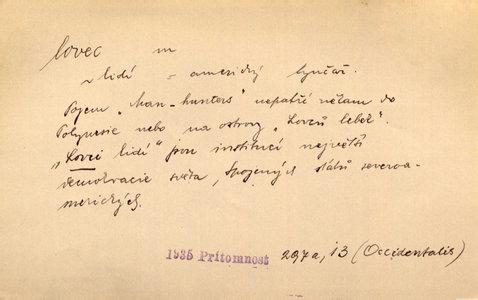 lovec m
~ lidí = americký lynčář.
Pojem „Man-hunters" nepatří někam do
Polynesie nebo na ostrovy „Lovců lebek".
„Lovci lidí" jsou institucí největší
demokracie světa, Spojených států severoa-
merických.
1935 Přítomnost 297a, 13 (Occidentalis)